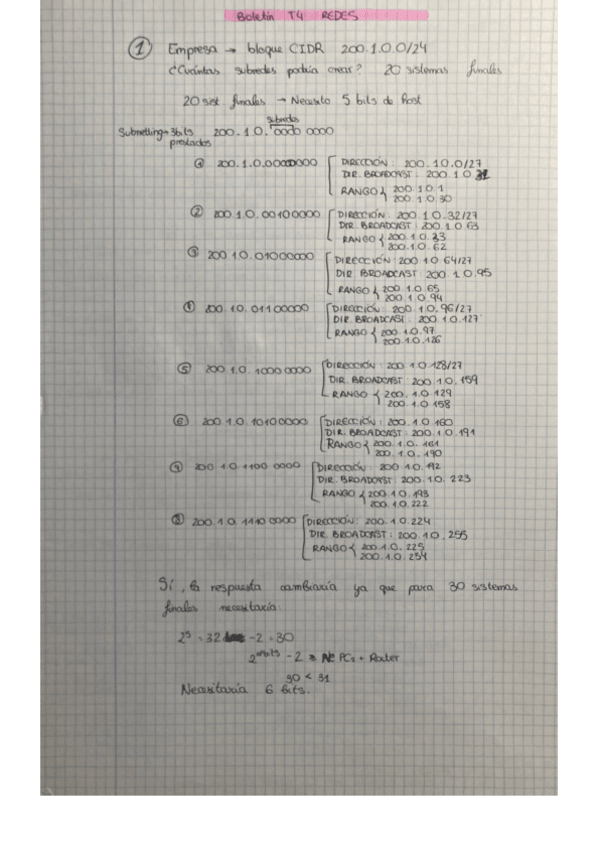 Boletín T4 REDES
① Empresa → bloque CIDR 200.1.0.0/24
¿Cuántas subredes podría crear? 20 sistemas finales
20 sist finales → Necesito 5 bits de host
subredes
Subnetting→3bits 200.1.0.0000 0000
prestados
① 200.1.0.00000000 DIRECCIÓN: 200.1.0.0/27
DIR. BROADCAST: 200.1.0.31
RANGO { 200.1.0.1
200.1.0.30
② 200.1.0.00100000 DIRECCIÓN: 200.1.0.32/27
DIR. BROADCAST: 200.1.0.63
RANGO { 200.1.0.33
200.1.0.62
③ 200.1.0.01000000 DIRECCIÓN: 200.1.0.64/27
DIR BROADCAST: 200.1.0.95
RANGO { 200.1.0.65
200.1.0.94
④ 200.1.0.01100000 DIRECCIÓN: 200.1.0.96/27
DIR. BROADCAST: 200.1.0.127
RANGO { 200.1.0.97
200.1.0.126
⑤ 200.1.0.1000 0000 DIRECCIÓN: 200.1.0.128/27
DIR. BROADCAST: 200.1.0.159
RANGO { 200.1.0.129
200.1.0.158
⑥ 200.1.0.10100000 DIRECCIÓN: 200.1.0.160
DIR. BROADCAST: 200.1.0.191
RANGO { 200.1.0.161
200.1.0.190
⑦ 200.1.0.1100 0000 DIRECCIÓN: 200.1.0.192
DIR. BROADCAST: 200.1.0.223
RANGO { 200.1.0.193
200.1.0.222
⑧ 200.1.0.1110 0000 DIRECCIÓN: 200.1.0.224
DIR. BROADCAST: 200.1.0.255
RANGO { 200.1.0.225
200.1.0.254
Sí, la respuesta cambiaría ya que para 30 sistemas
finales necesitaría:
2⁵ = 32 - 2 = 30
- 2 ≥ Nº PCs + Router
30 < 31
Necesitaría 6 bits.